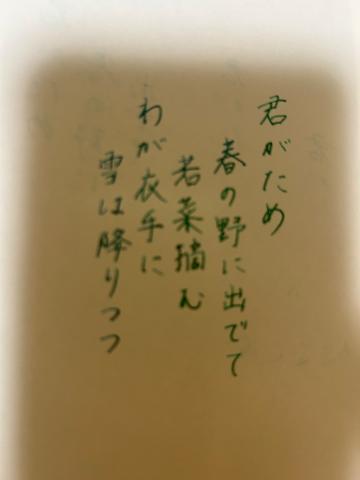 君がため
春の野に出でて
若菜摘む
わが衣手に
雪は降りつつ